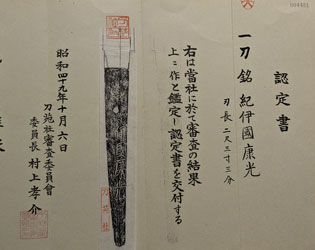 認定書
一刀 銘 紀伊國康光
刃長 二尺三寸三分
右は當社に於て審査の結果
上々作と鑑定し認定書を交付する
昭和四十九年十月六日
刀苑社審査委員會
委員長 村上孝介